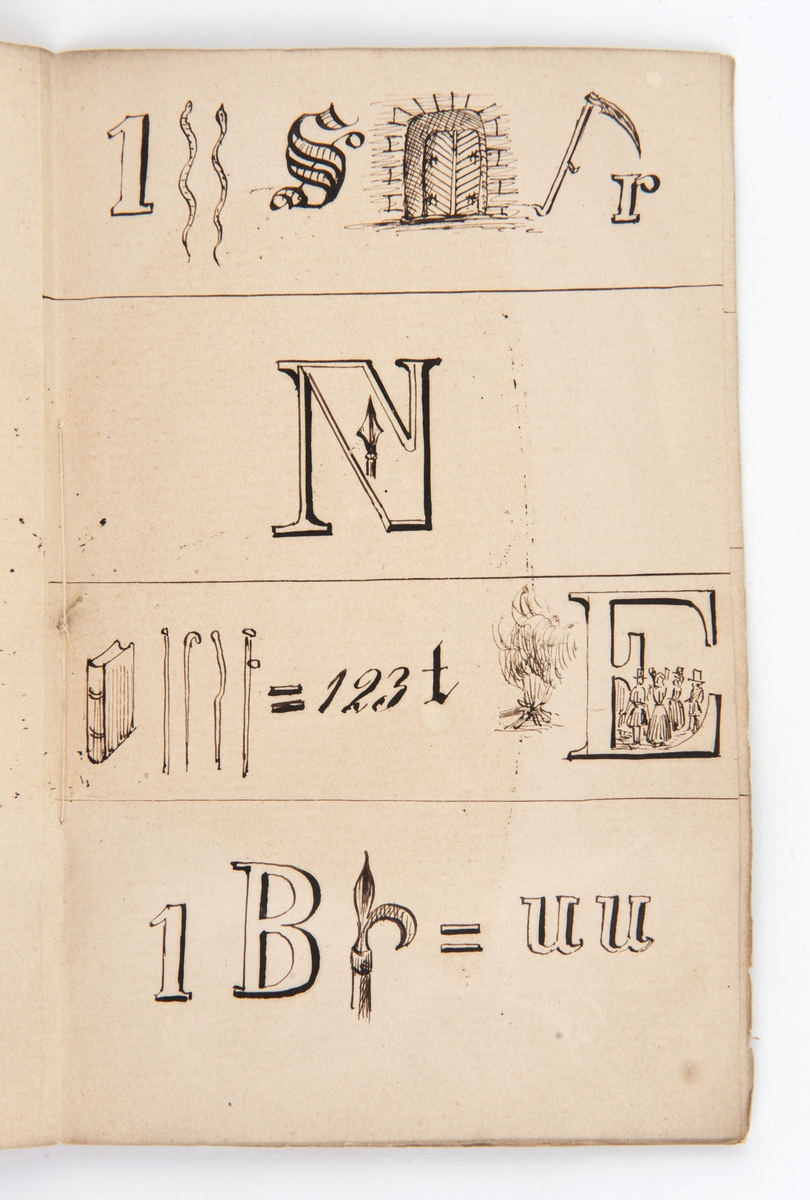 1 S r
N
= 123 t E
1 B = uu